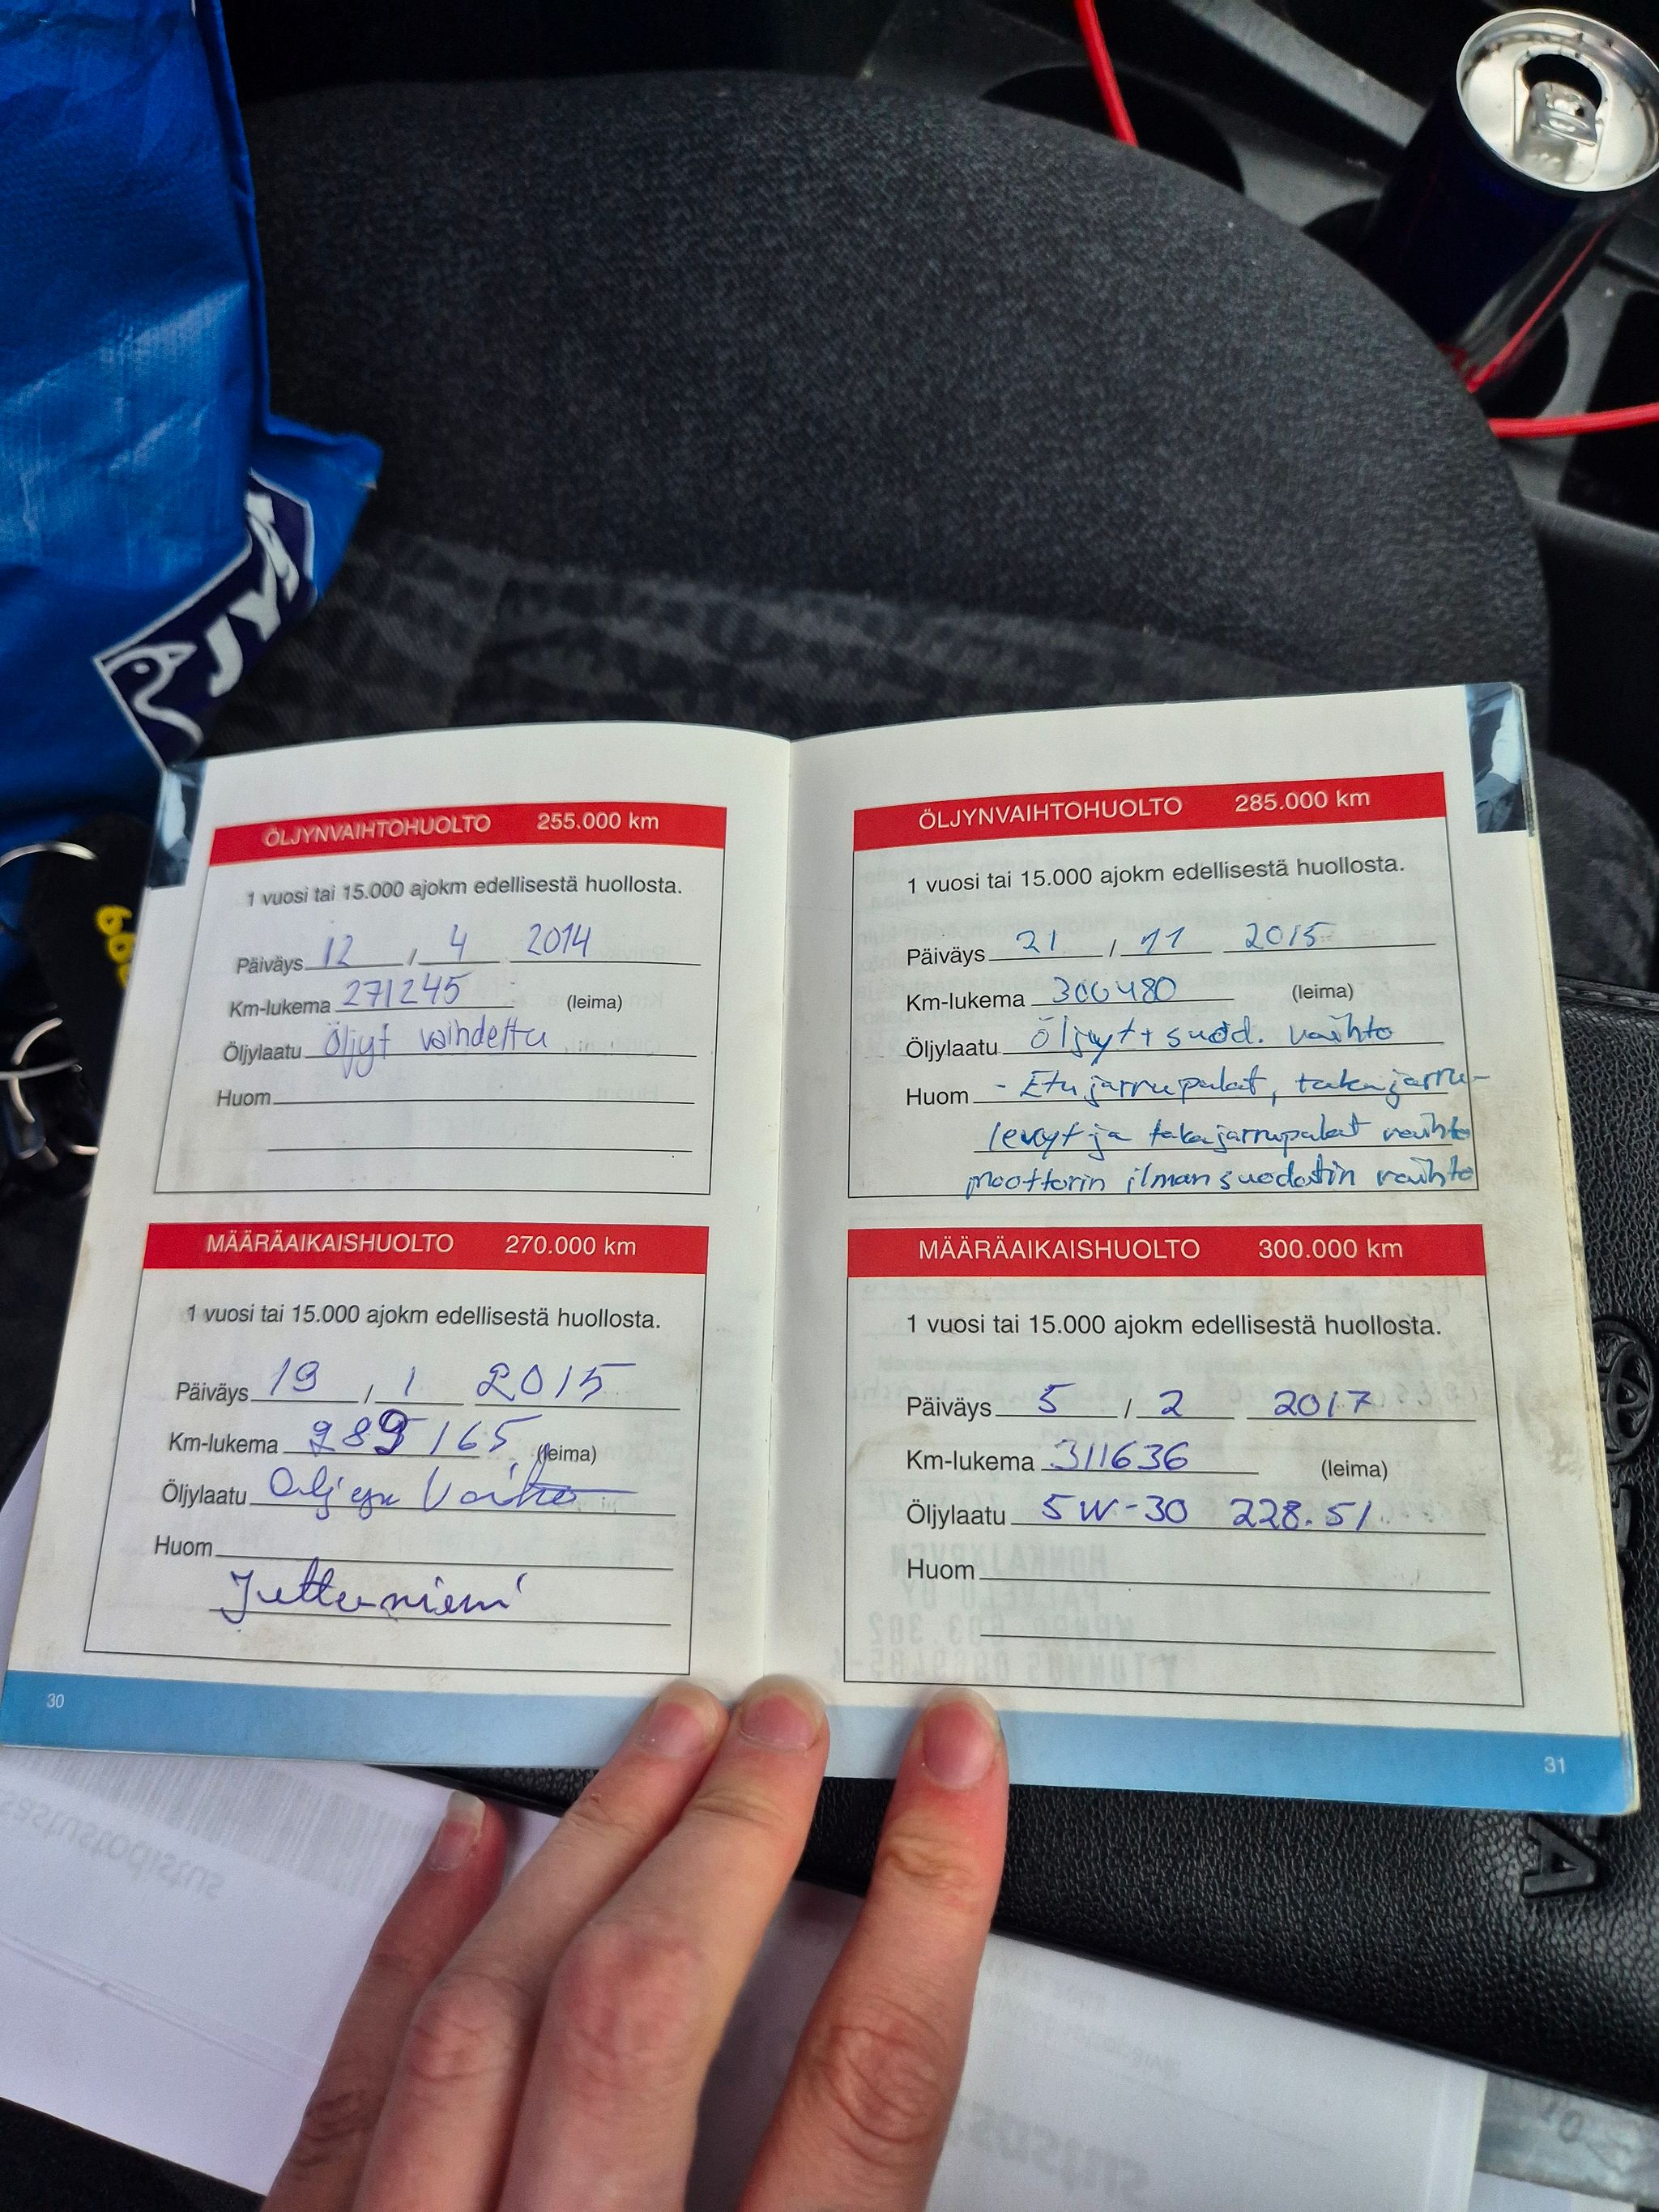 JYSK
ÖLJYNVAIHTOHUOLTO 255.000 km
1 vuosi tai 15.000 ajokm edellisestä huollosta.
Päiväys 12 / 4 2014
Km-lukema 271245 (leima)
Öljylaatu Öljyt vaihdettu
Huom
MÄÄRÄAIKAISHUOLTO 270.000 km
1 vuosi tai 15.000 ajokm edellisestä huollosta.
Päiväys 19 / 1 2015
Km-lukema 289165 (leima)
Öljylaatu Öljyn Vaihto
Huom
30
ÖLJYNVAIHTOHUOLTO 285.000 km
1 vuosi tai 15.000 ajokm edellisestä huollosta.
Päiväys 21 / 11 2015
Km-lukema 300480 (leima)
Öljylaatu öljyt+suod. vaihto
Huom - Etujarrupalat, takajarru-
levyt ja takajarrupalat vaihto
moottorin ilmansuodatin vaihto
MÄÄRÄAIKAISHUOLTO 300.000 km
1 vuosi tai 15.000 ajokm edellisestä huollosta.
Päiväys 5 / 2 2017
Km-lukema 311636 (leima)
Öljylaatu 5W-30 228.51
Huom
31